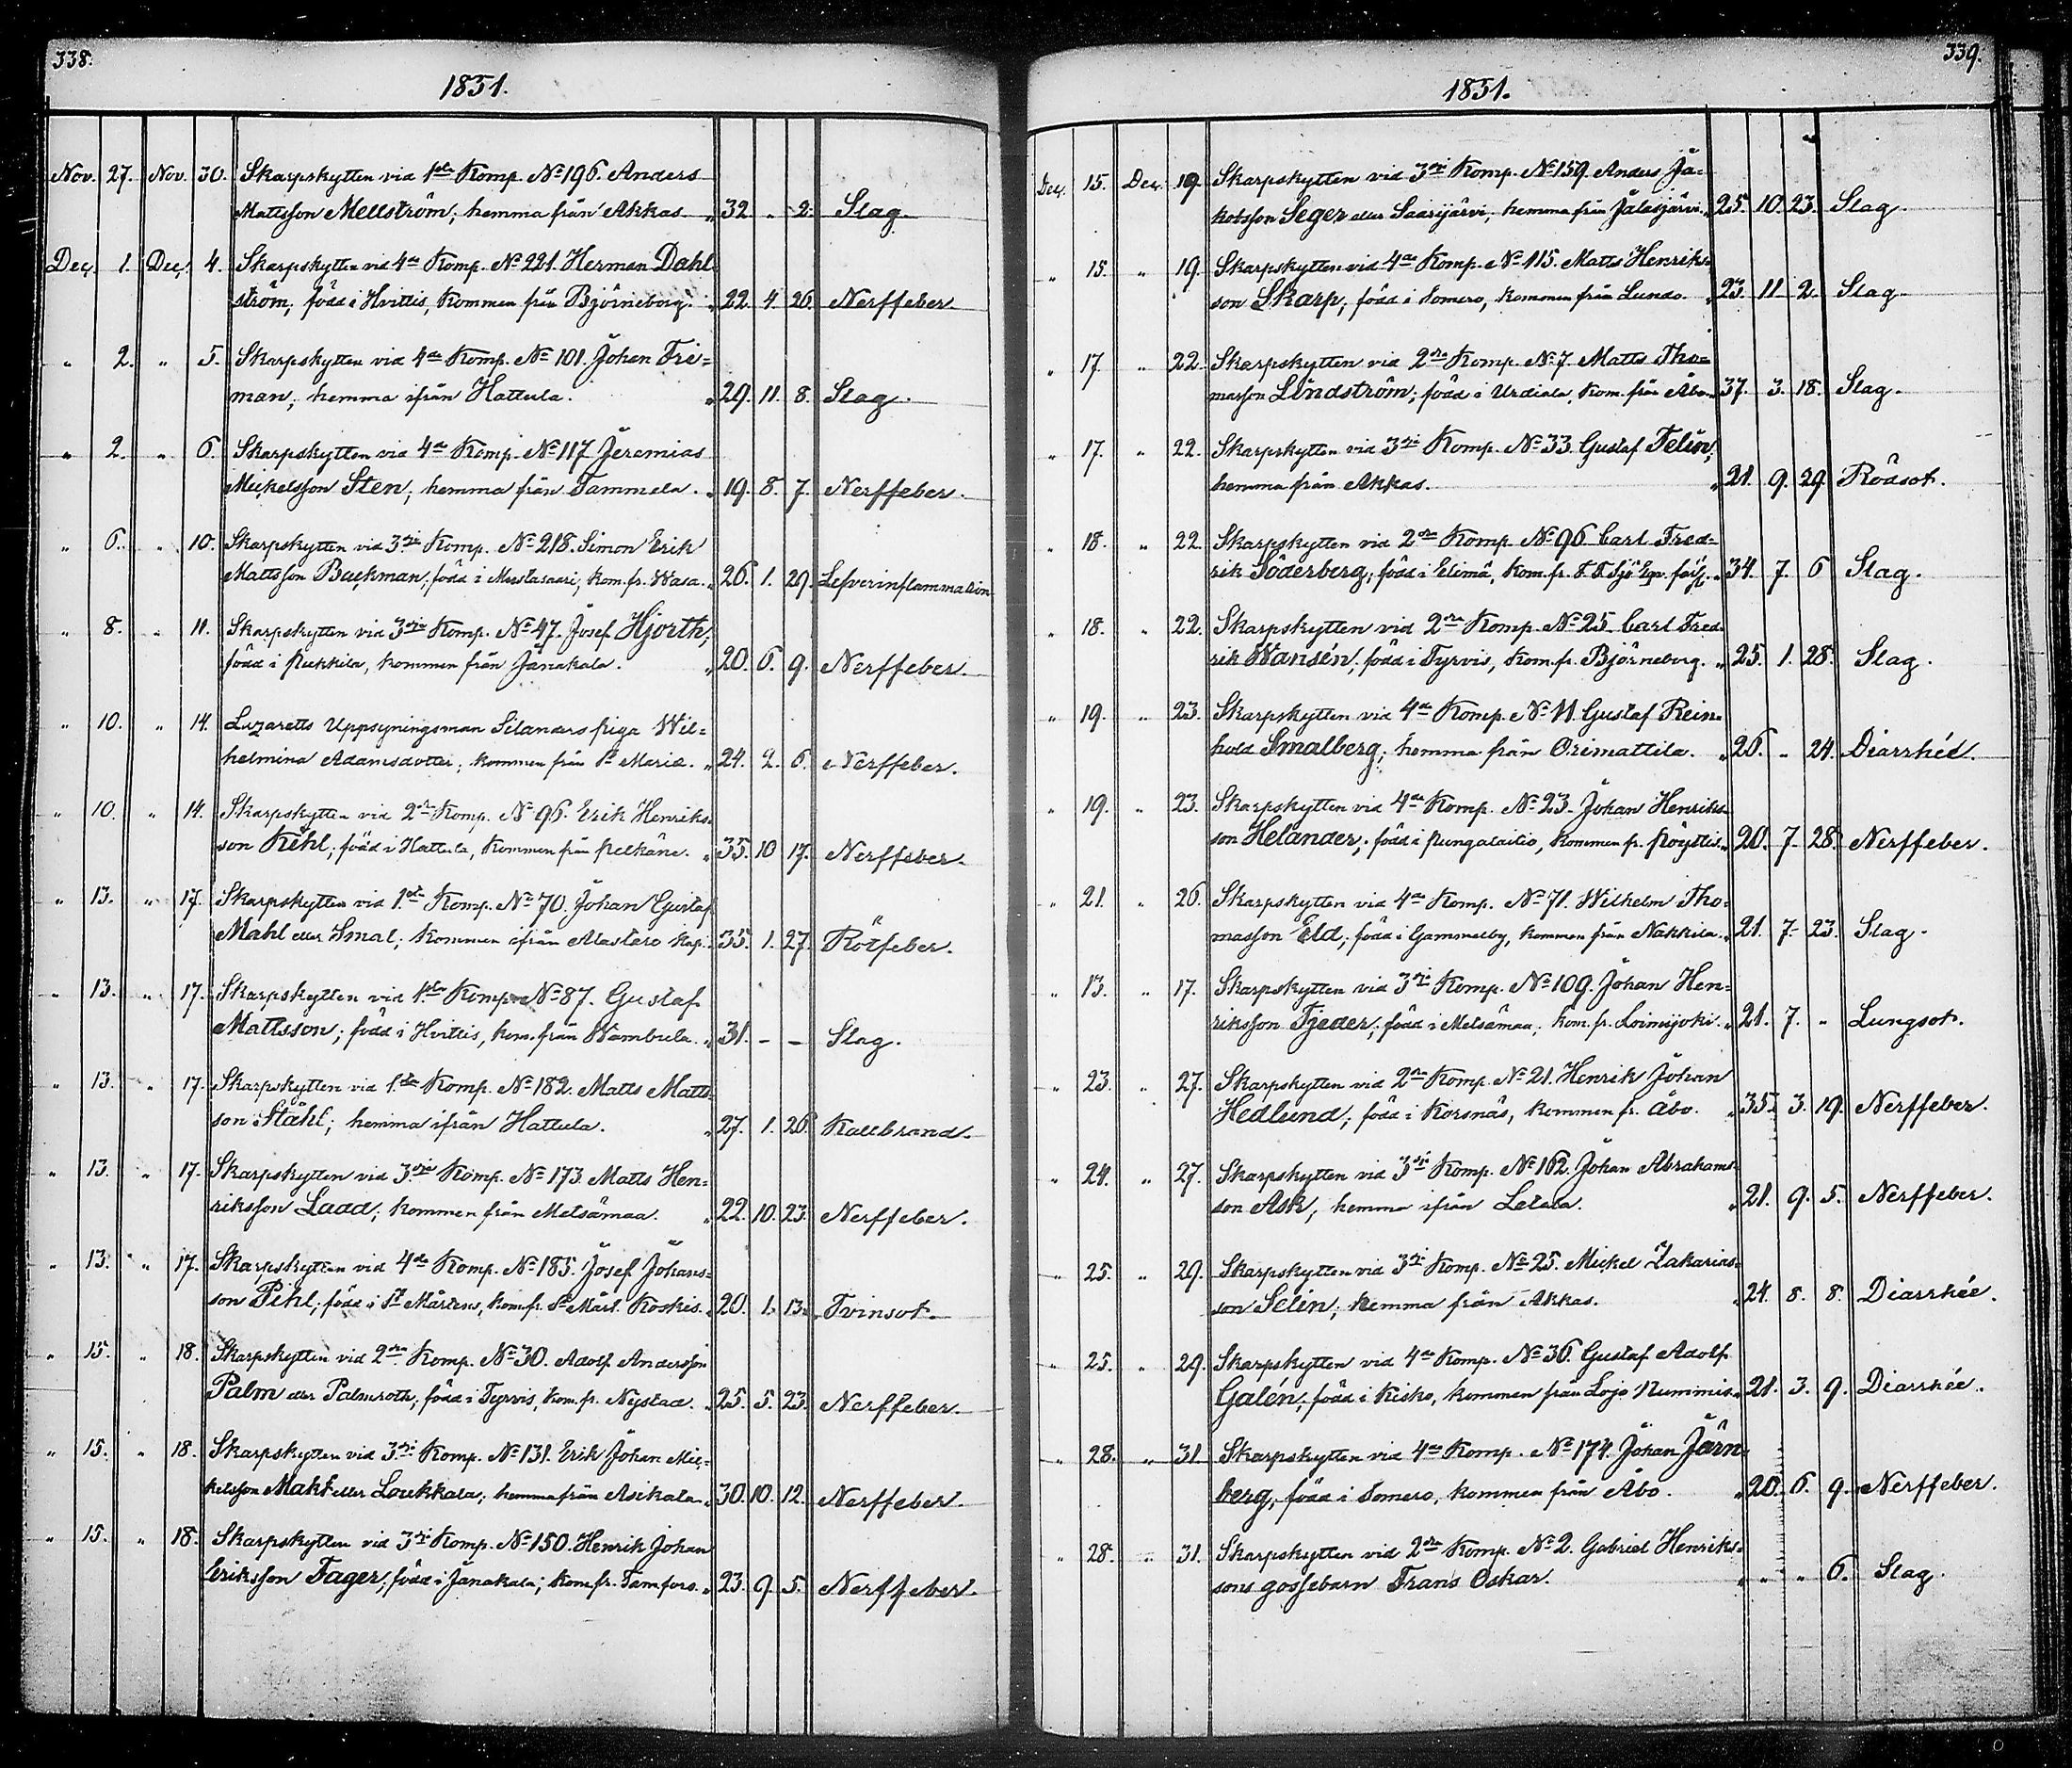 338.
1831.
Nov. 27. Nov. 30. Skarpskytten vid 1sta Komp. No 196. Anders
Mattsson Mellström; hemma från Akkas. " 32 " 2. Slag.
Dec. 1. Dec. 4. Skarpskytten vid 4de Komp. No 221. Herman Dahl
ström; född i Hvittis, kommen från Björneborg. " 22. 4. 26. Nerffeber.
" 2. " 5. Skarpskytten vid 4de Komp. No 101. Johan Fri=
man; hemma ifrån Hattula. " 29. 11. 8. Slag.
" 2. " 6. Skarpskytten vid 4de Komp. No 117 Jeremias
Mickelsson Sten; hemma från Tammela. " 19. 8. 7. Nerffeber.
" 6. " 10. Skarpskytten vid 3dje Komp. No 218. Simon Erik
Mattsson Backman; född i Mustasaari; kom. fr. Wasa. " 26. 1. 29. Lefverinflammation
" 8. " 11. Skarpskytten vid 3dje Komp. No 47. Josef Hjorth,
född i Pukkila, kommen från Janakala. " 20. 6. 9. Nerffeber.
" 10. " 14. Lazaretts Uppsyningsman Silanders piga Wil=
helmina Adamsdotter; kommen från St Marie. " 24. 2. 6. Nerffeber.
" 10. " 14. Skarpskytten vid 2dra Komp. No 96. Erik Henriks=
son Kihl; född i Hattula, kommen från Pelkäne. " 35. 10 17. Nerffeber.
" 13. " 17. Skarpskytten vid 1sta Komp. No 70. Johan Gustaf
Mahl eller Smal; kommen ifrån Alastaro kap. " 35. 1. 27. Rötfeber.
" 13. " 17. Skarpskytten vid 1sta Komp. No 87. Gustaf
Mattsson; född i Hvittis, kom. från Wambula. " 31. - - Slag.
" 13. " 17. Skarpskytten vid 1sta Komp. No 182. Matts Matts=
son Ståhl; hemma ifrån Hattula. " 27. 1. 26. Kallbrand.
" 13. " 17. Skarpskytten vid 3dje Komp. No 173. Matts Hen=
riksson Ladd; kommen från Metsämaa. " 22. 10. 23. Nerffeber.
" 13. " 17. Skarpskytten vid 4de Komp. No 185. Josef Johans=
son Pihl; född i St Mårtens, kom. fr. St Mårt. Koskis. " 20. 1. 13. Tvinsot.
" 15. " 18. Skarpskytten vid 2dra Komp. No 30. Adolf Andersson
Palm eller Palmroth; född i Tyrvis, kom. fr. Nystad. " 25. 5. 23. Nerffeber.
" 15. " 18. Skarpskytten vid 3dje Komp. No 131. Erik Johan Mic=
kelsson Makt eller Loukkala; hemma från Asikala. " 30. 10. 12. Nerffeber.
" 15. " 18. Skarpskytten vid 3dje Komp. No 150. Henrik Johan
Eriksson Fager; född i Janakala; kom. fr. Tamfors. " 23. 9. 5. Nerffeber.
339.
1831.
Dec. 15. Dec. 19. Skarpskytten vid 3dje Komp. No 159. Anders Ja=
kobsson Seger eller Saarijärvi, hemma från Jalasjärvi. " 25. 10. 23. Slag.
" 15. " 19. Skarpskytten vid 4de Komp. No 115. Matts Henriks=
son Skarp; född i Somero, kommen från Lundo. " 23. 11. 2. Slag.
" 17. " 22. Skarpskytten vid 2dra Komp. No 7. Matts Tho=
masson Lindström; född i Urdiala, kom. från Åbo. " 37. 3. 18. Slag.
" 17. " 22. Skarpskytten vid 3dje Komp. No 33. Gustaf Felin;
hemma från Akkas. " 21. 9. 29. Rödsot.
" 18. " 22. Skarpskytten vid 2dra Komp. No 96 Carl Fred=
rik Söderberg; född i Elimä, kom. fr. F. F. Sjö Eqv. förs. " 34. 7. 6 Slag.
" 18. " 22. Skarpskytten vid 2dra Komp. No 25. Carl Fred=
rik Wansén; född i Tyrvis, kom. fr. Björneborg. " 25. 1. 28. Slag.
" 19. " 23. Skarpskytten vid 4de Komp. No 11. Gustaf Rein=
hold Smalberg; hemma från Orimattila. " 26. - 24. Diarrhée.
" 19. " 23. Skarpskytten vid 4de Komp. No 23. Johan Henriks=
son Helander; född i Pungalaitio, kommen fr. Pöyttis. " 20. 7. 28. Nerffeber.
" 21. " 26. Skarpskytten vid 4de Komp. No 71. Wilhelm Tho=
masson Eld; född i Gammelby, kommen från Nakkila. " 21. 7. 23. Slag.
" 13. " 17. Skarpskytten vid 3dje Komp. No 109. Johan Hen=
riksson Fjeder; född i Metsämaa; kom. fr. Loimijoki. " 21. 7. " Lungsot.
" 23. " 27. Skarpskytten vid 2dra Komp. No 21. Henrik Johan
Hedlund; född i Korsnäs, kommen fr. Åbo. " 35. 3. 19. Nerffeber.
" 24. " 27. Skarpskytten vid 3dje Komp. No 162. Johan Abrahams=
son Ask; hemma ifrån Letala. " 21. 9. 5. Nerffeber.
" 25. " 29. Skarpskytten vid 3dje Komp. No 25. Mickel Zakarias=
son Selin; hemma från Akkas. " 24. 8. 8. Diarrhée.
" 25. " 29. Skarpskytten vid 4de Komp. No 36. Gustaf Adolf
Galén; född i Kisko, kommen från Lojo Nummis. " 21. 3. 9. Diarrhée.
" 28. " 31. Skarpskytten vid 4de Komp. No 174. Johan Järn=
berg; född i Somero, kommen från Åbo. " 20. 6. 9. Nerffeber.
" 28. " 31. Skarpskytten vid 2dra Komp. No 2. Gabriel Henriks=
sons gossebarn Frans Oskar. " " " 6. Slag.